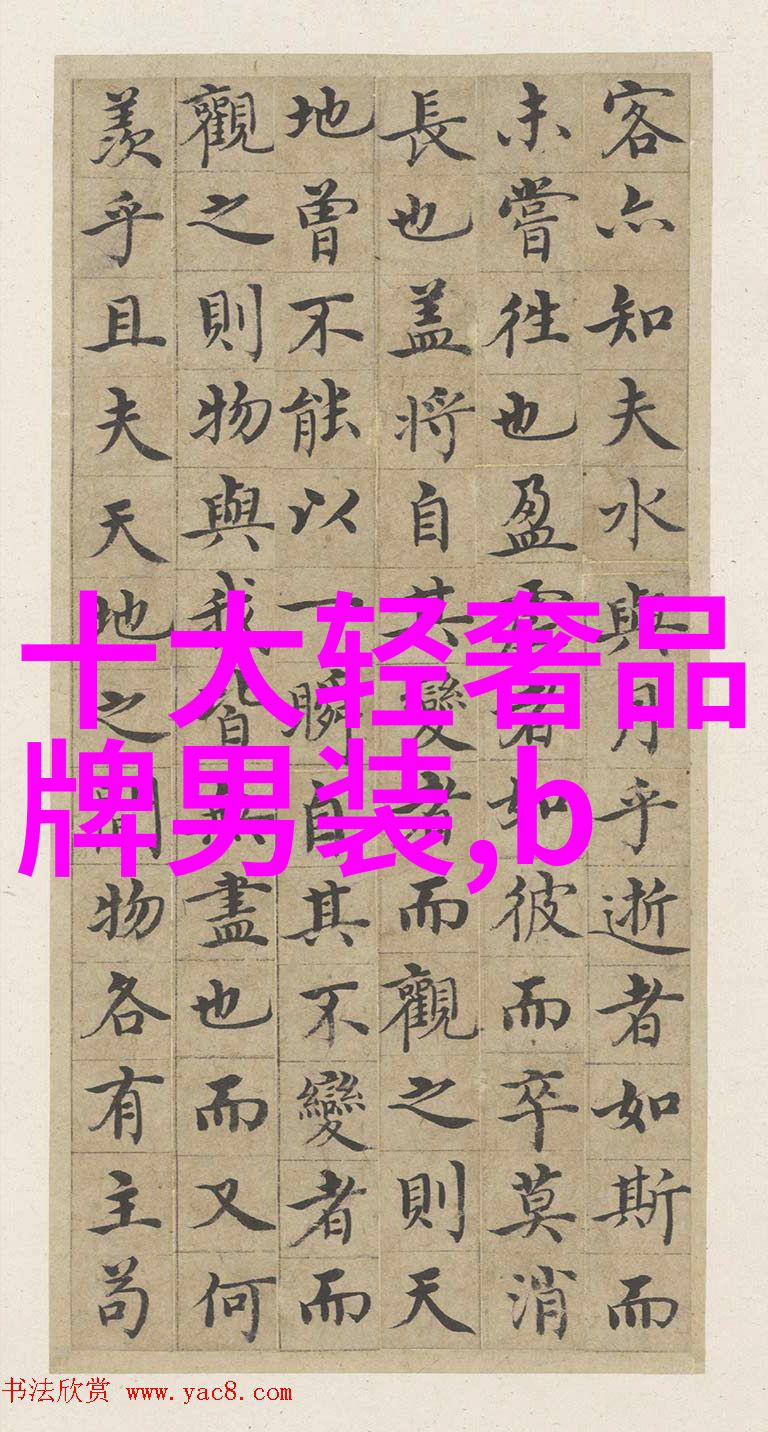 客亦知夫水與月乎逝者如斯而
未嘗徃也盈虛者如彼而卒莫消
長也盖將自其變者而觀之則天
地曾不能以一瞬自其不變者而
觀之則物與我皆無盡也而又何
羨乎且夫天地之間物各有主苟
十大轻奢品
牌男装,b
书法欣赏 www.yac8.com